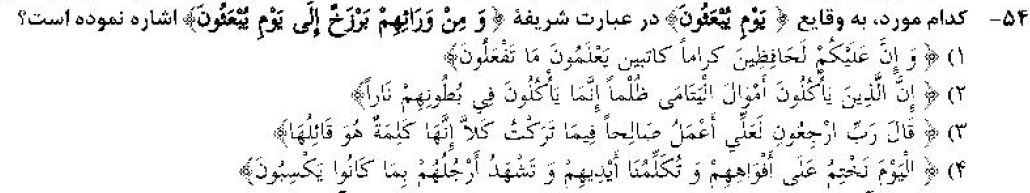 ۵۴- کدام مورد، به وقایع ﴿ یَوْمِ یُبْعَثُونَ﴾ در عبارت شریفهٔ ﴿ وَ مِنْ وَرَائِهِمْ بَرْزَخٌ إِلَی یَوْمِ یُبْعَثُونَ﴾ اشاره نموده است؟
۱) ﴿ وَ إِنَّ عَلَیْکُمْ لَحَافِظِینَ کِراماً کاتبین یَعْلَمُونَ مَا تَفْعَلُونَ﴾
۲) ﴿ إِنَّ الَّذِینَ یَأْکُلُونَ أَمْوَالَ الْیَتَامَی ظُلْماً إِنَّمَا یَأْکُلُونَ فِی بُطُونِهِمْ نَاراً﴾
۳) ﴿ قَالَ رَبِّ ارْجِعُونِ لَعَلِّی أَعْمَلُ صَالِحاً فِیمَا تَرَکْتُ کَلاَّ إِنَّهَا کَلِمَةٌ هُوَ قَائِلُهَا﴾
۴) ﴿ الْیَوْمَ نَخْتِمُ عَلَی أَفْوَاهِهِمْ وَ تُکَلِّمُنَا أَیْدِیهِمْ وَ تَشْهَدُ أَرْجُلُهُمْ بِمَا کَانُوا یَکْسِبُونَ﴾